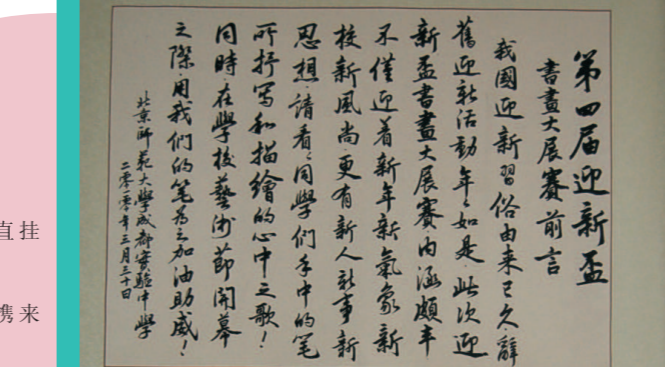 第四届迎新盃
書畫大展賽前言
我國迎新習俗由来已久辭
舊迎新活動年々如是此次迎
新盃書畫大展賽内涵頗丰
不僅迎着新年新氣象新
校新風尚更有新人新事新
思想請看同學们手中的笔
所抒写和描繪的心中之歌！
同時在學校藝術節開幕
之際用我们的笔為之加油助威！
北京師范大學成都實驗中學
二零一零年三月三十日
直挂
携来